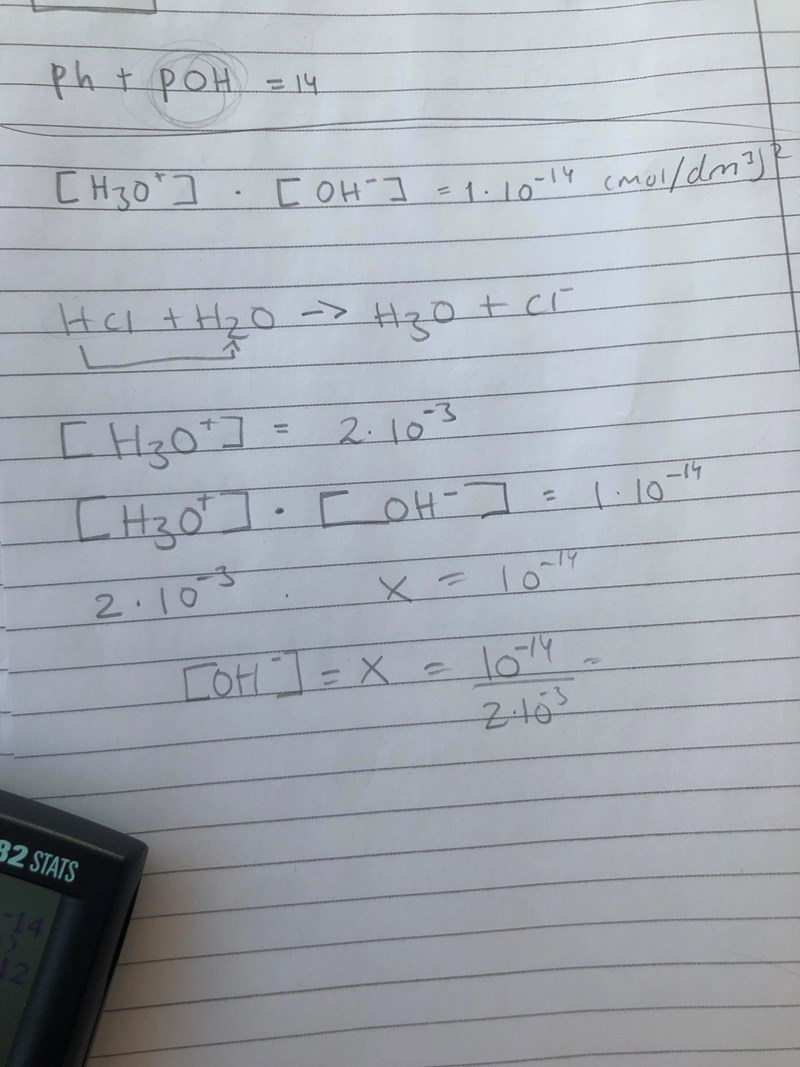 ph + pOH = 14
[H₃O⁺] · [OH⁻] = 1·10⁻¹⁴ (mol/dm³)²
HCl + H₂O -> H₃O + Cl⁻
[H₃O⁺] = 2·10⁻³
[H₃O⁺] · [OH⁻] = 1·10⁻¹⁴
2·10⁻³ · x = 10⁻¹⁴
[OH⁻] = x = 10⁻¹⁴ / 2·10⁻³ =
32 STATS
-14
12